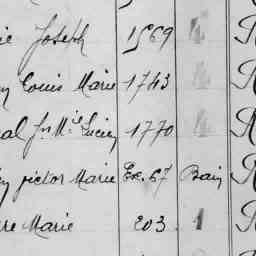 ie Joseph 1569 4 R
y Louis Marie 1743 4 R
al Jn Mie Lucien 1770 4 R
y pictor Marie Ex. 67 Bain R
re Marie 203 1 R